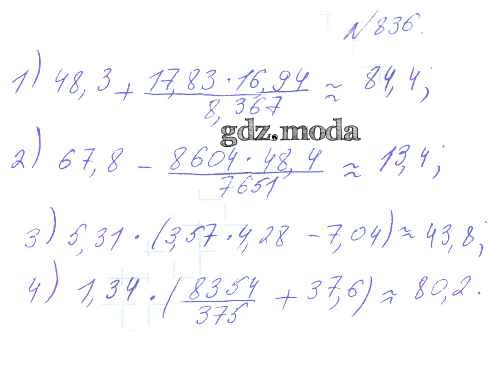 №836.
1) 48,3 + 17,83 · 16,94 / 8,367 ≈ 84,4;
gdz.moda
2) 67,8 - 8604 · 48,4 / 7651 ≈ 13,4;
3) 5,31 · (3,57 · 4,28 - 7,04) ≈ 43,8;
4) 1,34 · (8354 / 375 + 37,6) ≈ 80,2.